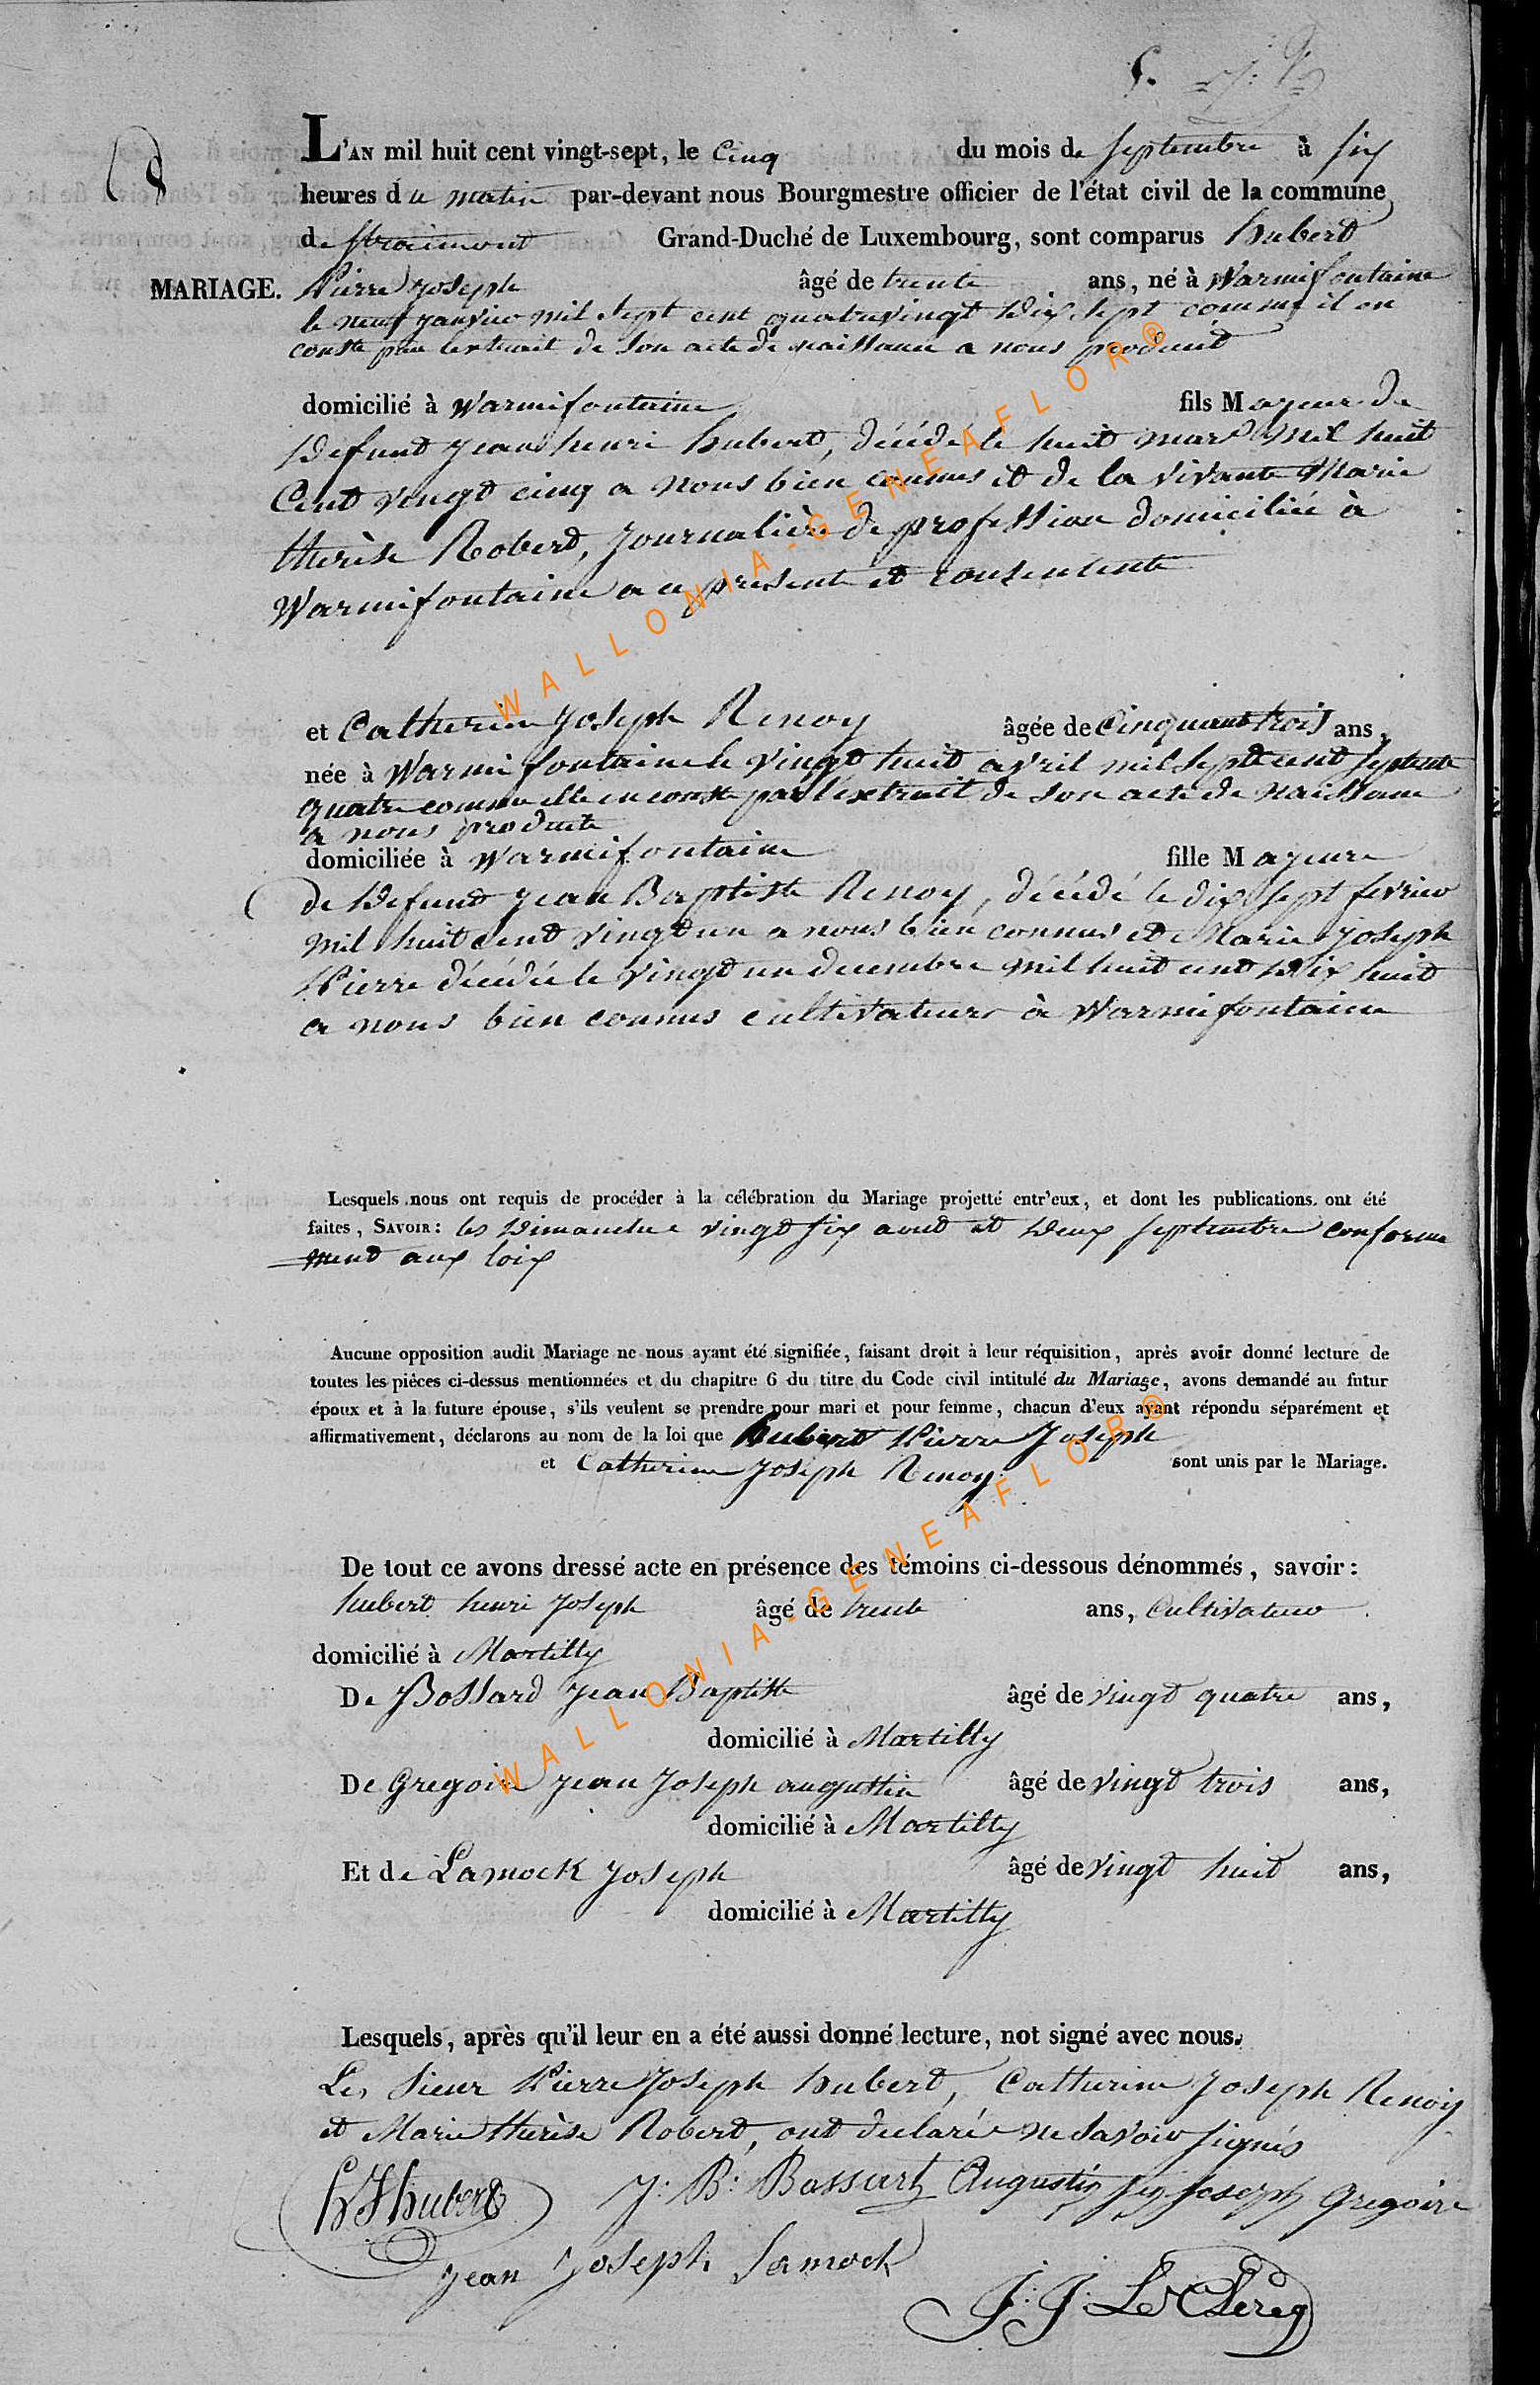 5.
8
L'AN mil huit cent vingt-sept, le Cinq du mois de Septembre à Six
heures du matin par-devant nous Bourgmestre officier de l'état civil de la commune
de Straimont Grand-Duché de Luxembourg, sont comparus hubert
MARIAGE. Pierre Joseph âgé de trente ans, né à Warmifontaine
le neuf janvier mil sept cent quatrevingt Dix Sept comme il en
conste par lextrait de son acte de naissance a nous produit
domicilié à Warmifontaine fils Majeur de
Defunt jean henri hubert, décédé le huit mars mil huit
Cent vingt cinq a nous bien connus et de la vivante Marie
therèse Robert, journalière de profession domiciliée à
Warmifontaine a ce presente et consentente
et Catherine Joseph Renoy âgée de Cinquante trois ans,
née à Warmifontaine le vingt huit avril mil sept cent septente
quatre comme elle en conste par l'extrait de son acte de naissance
a nous produite
domiciliée à Warmifontaine fille Majeure
de Defunt jean Baptiste Renoy, décédé le dix sept fevrier
mil huit cent vingt un a nous bien connus et Marie joseph
Pierre décédée le vingt un decembre mil huit cent Dix huit
a nous bien connus cultivateurs à Warmifontaine
Lesquels nous ont requis de procéder à la célébration du Mariage projetté entr'eux, et dont les publications ont été
faites, SAVOIR: les Dimanche vingt six aout et Deux septembre conforme
ment aux loix
Aucune opposition audit Mariage ne nous ayant été signifiée, faisant droit à leur réquisition, après avoir donné lecture de
toutes les pièces ci-dessus mentionnées et du chapitre 6 du titre du Code civil intitulé du Mariage, avons demandé au futur
époux et à la future épouse, s'ils veulent se prendre pour mari et pour femme, chacun d'eux ayant répondu séparément et
affirmativement, déclarons au nom de la loi que hubert Pierre Joseph
et Catherine Joseph Renoy sont unis par le Mariage.
De tout ce avons dressé acte en présence des témoins ci-dessous dénommés, savoir:
hubert henri Joseph âgé de trente ans, Cultivateur
domicilié à Martilly
De Bossard Jean Baptiste âgé de vingt quatre ans,
domicilié à Martilly
De Gregoire jean Joseph augustin âgé de vingt trois ans,
domicilié à Martilly
Et de Lamock Joseph âgé de vingt huit ans,
domicilié à Martilly
Lesquels, après qu'il leur en a été aussi donné lecture, not signé avec nous.
Les Sieur Pierre Joseph hubert, Catherine Joseph Renoy
et Marie therèse Robert, ont declaré ne savoir signés
h J hubert J: B: Bassart Augustin Joseph Gregoire
jean Joseph Lamock
J: J: Le Clercq
WALLONIA-GENEAFLOR®
WALLONIA-GENEAFLOR®